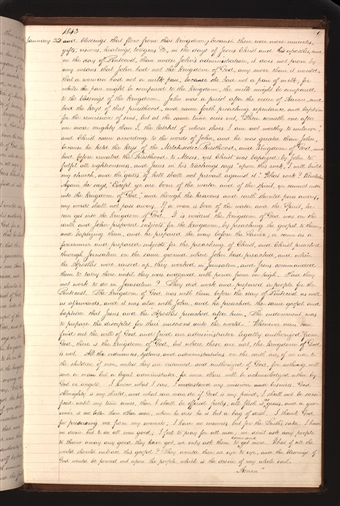 1843
January 22 and blessings that flow from that Kingdom, because there were more miracles,
gifts, visions, healings, tongues &c, in the days of Jesus Christ and his apostles, and
on the day of Pentecost, than under John's administration, it does not prove by
any means that John had not the Kingdom of God, any more than it would,
that a woman had not a milk pan, because she had not a pan of milk; for
while the pan might be compared to the kingdom, the milk might be compared
to the blessings of the Kingdom. John was a priest after the order of Aaron, and
had the keys of that priesthood, and came forth preaching repentance and baptism
for the remission of sins, but at the same time cries out, There cometh one after
me more mighty than I, the latchet of whose shoes I am not worthy to unloose,
and Christ came according to the words of John, and he was greater than John,
because he held the keys of the Melchisedec Priesthood, and Kingdom of God, and
had before revealed the Priesthood to Moses, yet Christ was baptized by John to
fulfil all righteousness; and Jesus in his teachings says "upon this rock I will build
my church, and the gates of hell shall not prevail against it." What rock? Revelation.
Again he says, "Except ye are born of the water, and of the Spirit, ye cannot enter
into the Kingdom of God" and "though the heavens and earth should pass away,
my words shall not pass away". If a man is born of the water and the Spirit, he
can get into the Kingdom of God. It is evident the Kingdom of God was on the
earth, and John prepared subjects for the Kingdom, by preaching the gospel to them
and baptizing them, and he prepared the way before the Savior, or came as a
forerunner and prepared subjects for the preaching of Christ, and Christ preached
through Jerusalem on the same ground where John had preached, and when
the Apostles were raised up, they worked in Jerusalem, and Jesus commanded
them to tarry there until they were endowed with power from on high. Had they
not work to do in Jerusalem? They did work and prepared a people for the
Pentecost. The Kingdom of God was with them before the day of Pentecost as well
as afterwards, and it was also with John, and he preached the same gospel and
baptism that Jesus and the Apostles preached after him. The endowment was
to prepare the disciples for their missions into the world. Whenever men can
find out the will of God and find an administrator legally authorized from
God, there is the Kingdom of God, but where these are not, the Kingdom of God
is not. All the ordinances, systems, and administrations on the earth are of no use to
the children of men, unless they are ordained and authorized of God, for nothing will
save a man but a legal administrator, for none others will be acknowledged either by
God or angels. I know what I say, I understand my mission and business. God
Almighty is my shield, and what can man do if God is my friend, I shall not be sacri-
ficed until my time comes, then I shall be offered freely. All flesh is grass, and a gov-
ernor is no better than other men; when he dies he is but a bag of dust. I thank God
for preserving me from my enemies, I have no enemies but for the truth's sake, I have
no desire but to do all men good. I feel to pray for all men, we don't ask any people
to throw away any good they have got, we only ask them to come and get more. What if all the
world should embrace this gospel? They would then see eye to eye, and the blessings of
God would be poured out upon the people, which is the desire of my whole soul.
Amen"